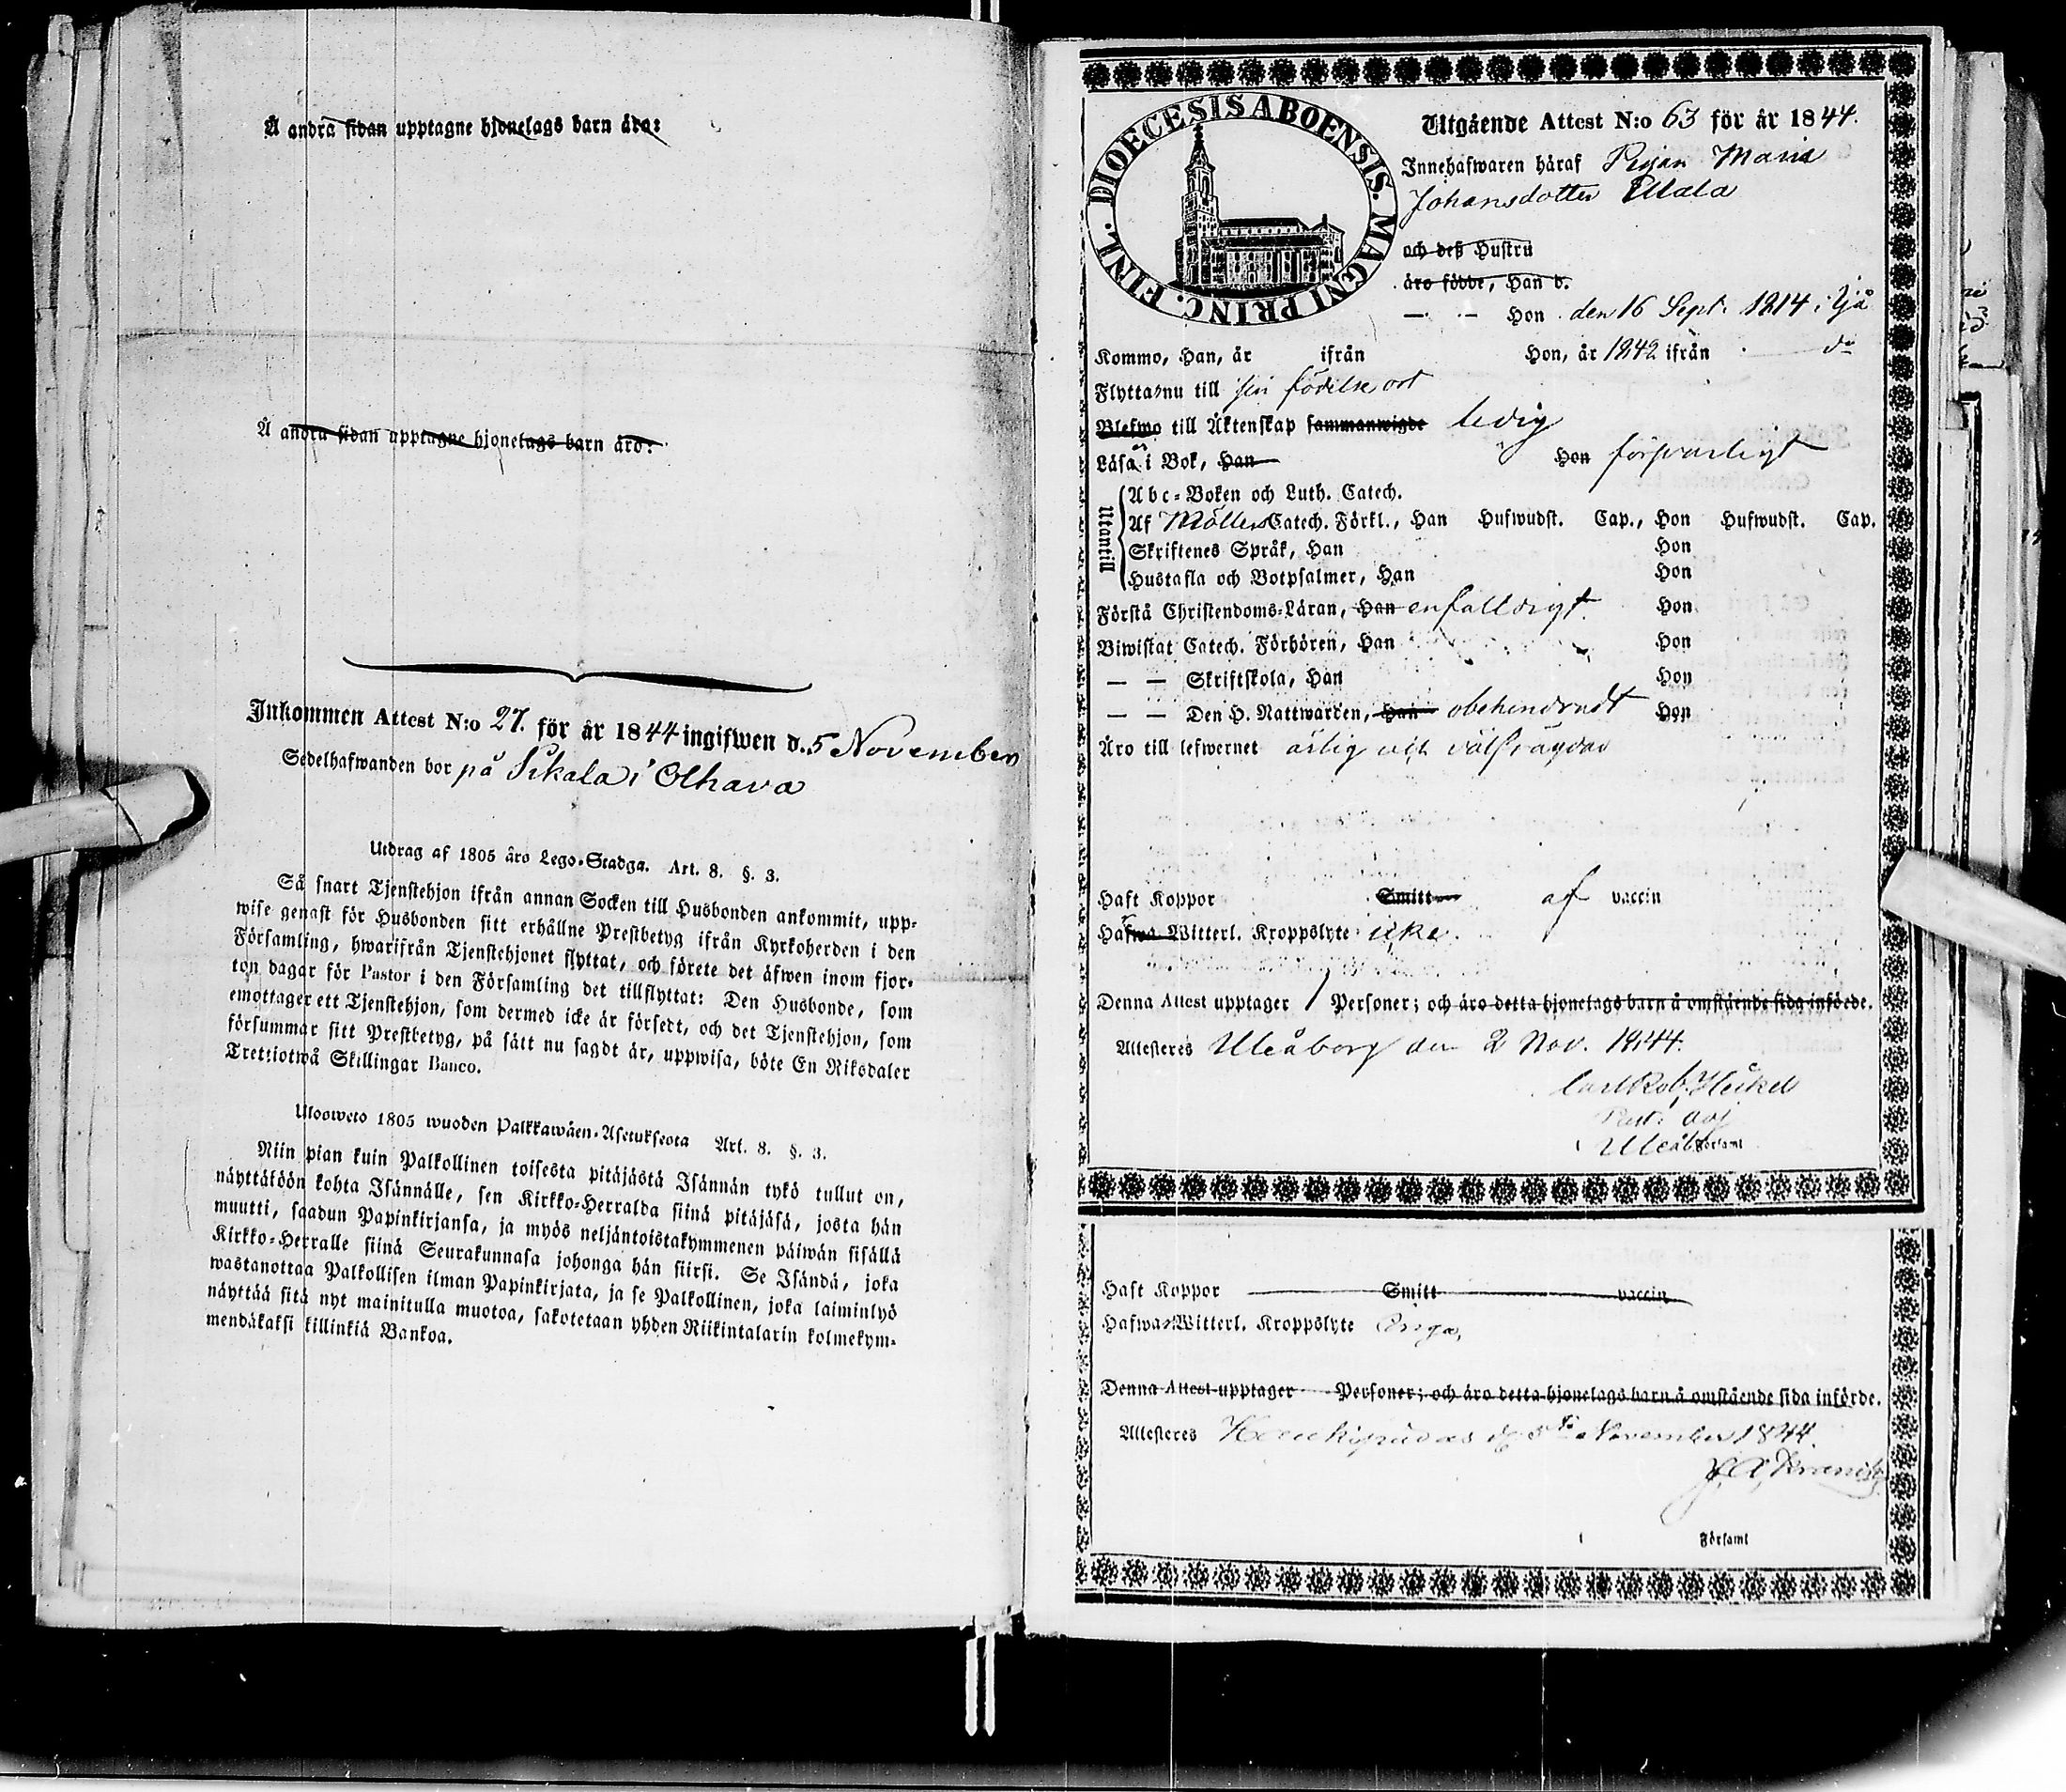 Å andra sidan upptagne hjonelags barn äro:
Å andra sidan upptagne hjonelags barn äro:
Inkommen Attest N:o 27. för år 1844 ingifwen d. 5 November
Sedelhafwanden bor på Sikala i Olhava
Utdrag af 1805 års Lego-Stadga. Art. 8. §. 3.
Så snart Tjenstehjon ifrån annan Socken till Husbonden ankommit, upp-
wise genast för Husbonden sitt erhållne Prestbetyg ifrån Kyrkoherden i den
Församling, hwarifrån Tjenstehjonet flyttat, och förete det äfwen inom fjor-
ton dagar för Pastor i den Församling det tillflyttat: Den Husbonde, som
emottager ett Tjenstehjon, som dermed icke är försedt, och det Tjenstehjon, som
försummar sitt Prestbetyg, på sätt nu sagdt är, uppwisa, böte En Riksdaler
Trettiotwå Skillingar Banco.
Ulosweto 1805 wuoden Palkkawäen-Asetuksesta Art. 8. §. 3.
Niin pian kuin Palkollinen toisesta pitäjästä Isännän tykö tullut on,
näyttäköön kohta Isännälle, sen Kirkko-Herralda siinä pitäjäsä, josta hän
muutti, saadun Papinkirjansa, ja myös neljäntoistakymmenen päiwän sisällä
Kirkko-Herralle siinä Seurakunnasa johonga hän siirsi. Se Isändä, joka
wastanottaa Palkollisen ilman Papinkirjata, ja se Palkollinen, joka laiminlyö
näyttää sitä nyt mainitulla muotoa, sakotetaan yhden Riikintalarin kolmekym-
mendäkaksi killinkiä Bankoa.
DIOECESIS ABOENSIS. MAGNI PRINC. FINL.
Utgående Attest N:o 63 för år 1844.
Innehafwaren häraf Pigan Maria
Johansdotter
och deß Hustru
äro födde, Han d.
— — Hon den 16 Sept. 1814 i Ijå
Kommo, Han, år ifrån Hon, år 1842 ifrån do
Flytta nu till sin födelse ort
Blefwo till Äktenskap sammanwigde ledig
Läsa i Bok, Han Hon försvarligt
Utantill
Abc-Boken och Luth. Catech.
Af Möllers Catech. Förkl., Han Hufwudst. Cap., Hon Hufwudst. Cap.
Skriftenes Språk, Han Hon
Hustafla och Botpsalmer, Han Hon
Förstå Christendoms-Läran, Han enfalldigt Hon
Biwistat Catech. Förhören, Han Hon
— — Skriftskola, Han Hon
— — Den H. Nattwarden, Han obehindradt Hon
Äro till lefwernet ärlig och välfrägdad
Haft Koppor Smitt af vaccin
Hafwa Witterl. Kroppslyte icke.
Denna Attest upptager 1 Personer; och äro detta hjonelags barn å omstående sida införde.
Attesteres Uleåborg den 2 Nov. 1844.
Carl Rob. Heikel
Past: adj
i Uleåb Församl
Haft Koppor Smitt vaccin
Hafwa Witterl. Kroppslyte Inga,
Denna Attest upptager Personer; och äro detta hjonelags barn å omstående sida införde.
Attesteres Haukipudas d. 5te November 1844.
i Församl